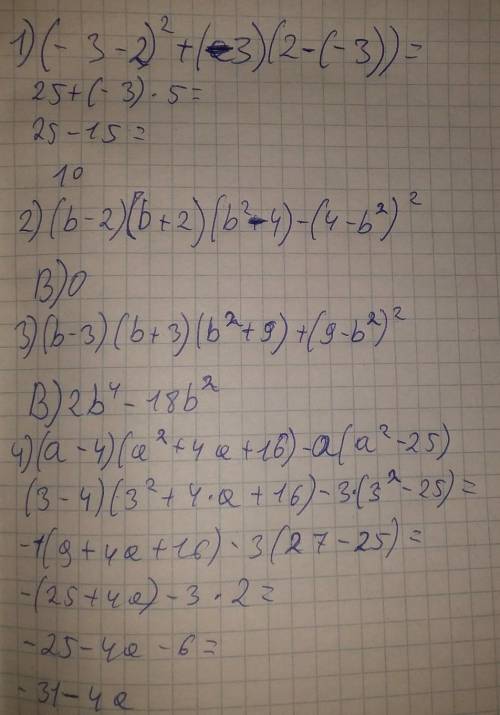 1) (- 3 - 2)² + (-3)(2 - (-3)) =
25 + (- 3) · 5 =
25 - 15 =
10
2) (b - 2)(b + 2)(b² - 4) - (4 - b²)²
В) 0
3) (b - 3)(b + 3)(b² + 9) + (9 - b²)²
В) 2b⁴ - 18b²
4) (a - 4)(a² + 4a + 16) - a(a² - 25)
(3 - 4)(3² + 4 · a + 16) - 3 · (3² - 25) =
-1(9 + 4a + 16) - 3(27 - 25) =
-(25 + 4a) - 3 · 2 =
-25 - 4a - 6 =
-31 - 4a